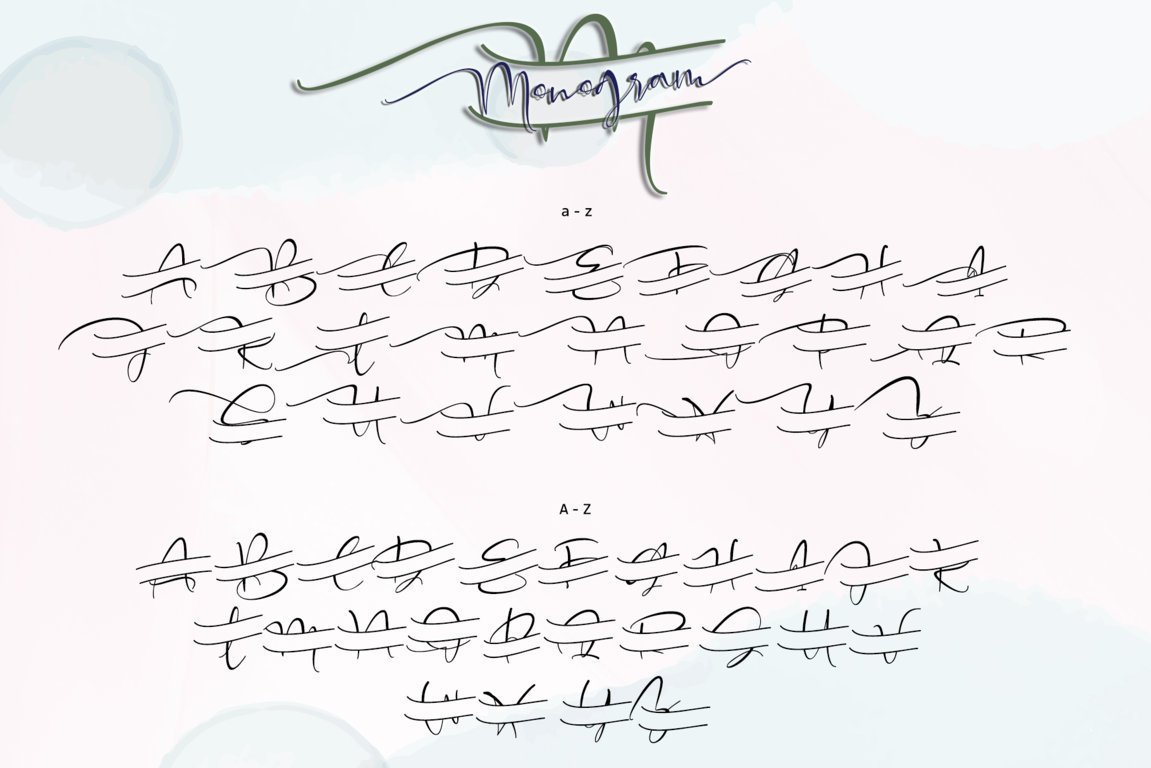 Monogram
a - z
A B C D E F G H I
J K L M N O P Q R
S T U V W X Y Z
A - Z
A B C D E F G H I J K
L M N O P Q R S T U V
W X Y Z